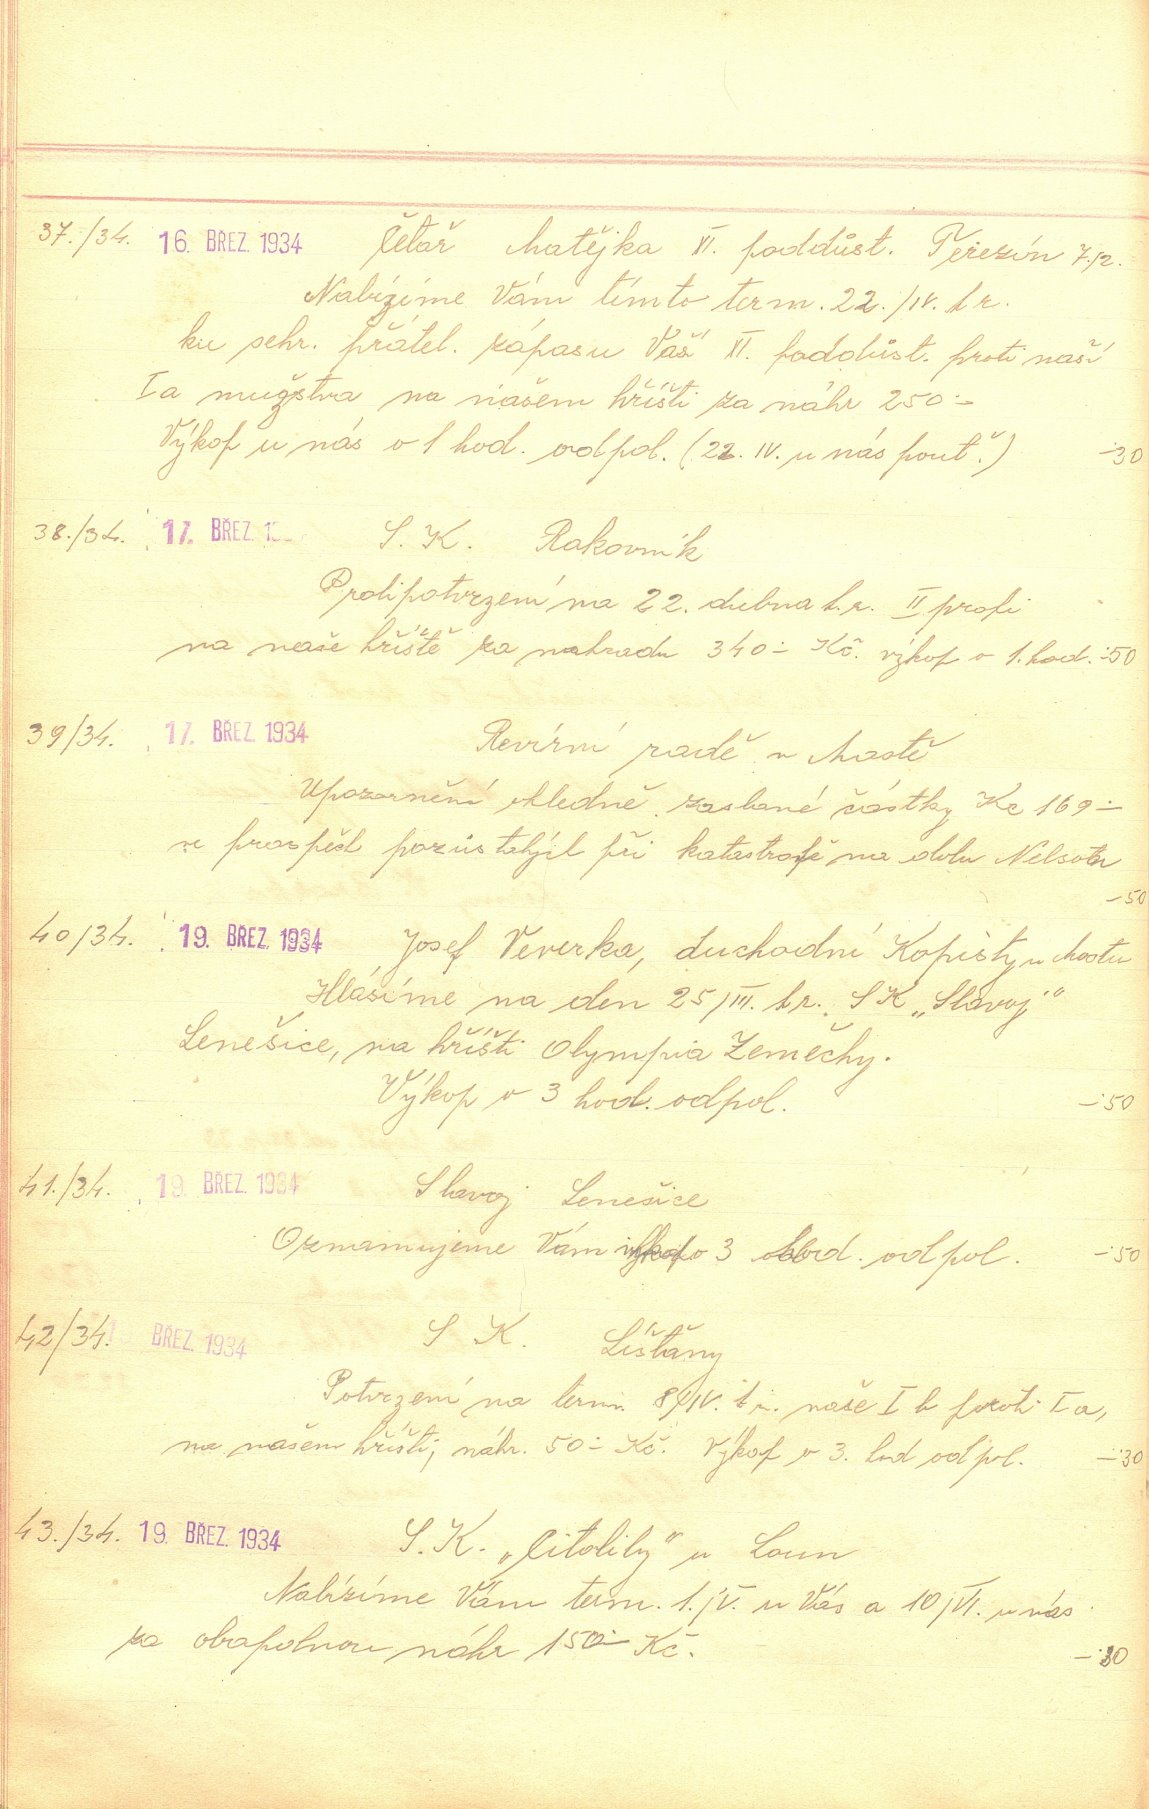 37./34. 16. BŘEZ. 1934 Četař Matějka XI. poddůst. Terezín 7./2.
Nabízíme Vám tímto term. 22./IV. t.r.
ku sehr. přátel. zápasu Vaší XI. poddůst. proti naší
Ia mužstva na našem hřišti za náhr 250.-
Výkop u nás o 1 hod. odpol. (22. IV. u nás pouť.) -30
38./34. 17. BŘEZ. S. K. Rakovník
Protipotvrzení na 22. dubna t.r. II profi
na naše hříště za nahradu 340.- Kč. výkop o 1. hod. -.50
39/34. 17. BŘEZ. 1934 Revírní radě v Mostě
Upozornění ohledně zaslané částky Kc 169.-
ve prospěch pozůstalých při katastrofě na dolu Nelson
-50
40/34. 19. BŘEZ. 1934 Josef Veverka, duchodní Kopisty u Mostu
Hlásíme na den 25/III. t.r. S K „Slavoj“
Lenešice, na hříšti Olympia Zeměchy.
Výkop o 3 hod. odpol. -.50
41./34. 19. BŘEZ. 1934 Slavoj Lenešice
Oznamujeme Vám výkop o 3 hod. odpol. -.50
42/34. BŘEZ. 1934 S K. Líšťany
Potvrzení na term. 8/IV. t.r. naše I b proti I a,
na našem hříšti, náhr. 50.- Kč. Výkop o 3. hod odpol. -.30
43./34. 19. BŘEZ. 1934 S. K. „Citoliby“ u Loun
Nabízíme Vám term. 1./V. u Vás a 10/VI. u nás
za obapolnou náhr 150.- Kč. -.30